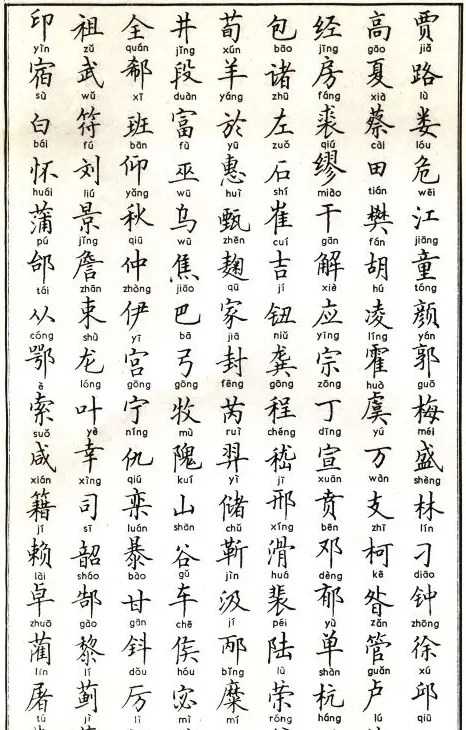 贾 jiǎ 路 lù 娄 lóu 危 wēi 江 jiāng 童 tóng 颜 yán 郭 guō 梅 méi 盛 shèng 林 lín 刁 diāo 钟 zhōng 徐 xú 邱 qiū
高 gāo 夏 xià 蔡 cài 田 tián 樊 fán 胡 hú 凌 líng 霍 huò 虞 yú 万 wàn 支 zhī 柯 kē 昝 zǎn 管 guǎn 卢 lú
经 jīng 房 fáng 裘 qiú 缪 miào 干 gān 解 xiè 应 yīng 宗 zōng 丁 dīng 宣 xuān 贲 bēn 邓 dèng 郁 yù 单 shàn 杭 háng
包 bāo 诸 zhū 左 zuǒ 石 shí 崔 cuí 吉 jí 钮 niǔ 龚 gōng 程 chéng 嵇 jī 邢 xíng 滑 huá 裴 péi 陆 lù 荣 róng
荀 xún 羊 yáng 於 yū 惠 huì 甄 zhēn 麹 qū 家 jiā 封 fēng 芮 ruì 羿 yì 储 chǔ 靳 jìn 汲 jí 邴 bǐng 糜 mí
井 jǐng 段 duàn 富 fù 巫 wū 乌 wū 焦 jiāo 巴 bā 弓 gōng 牧 mù 隗 kuí 山 shān 谷 gǔ 车 chē 侯 hóu 宓 mì
全 quán 郗 xī 班 bān 仰 yǎng 秋 qiū 仲 zhòng 伊 yī 宫 gōng 宁 níng 仇 qiú 栾 luán 暴 bào 甘 gān 钭 dǒu 厉 lì
祖 zǔ 武 wǔ 符 fú 刘 liú 景 jǐng 詹 zhān 束 shù 龙 lóng 叶 yè 幸 xìng 司 sī 韶 sháo 郜 gào 黎 lí 蓟 jì
印 yìn 宿 sù 白 bái 怀 huái 蒲 pú 邰 tái 从 cóng 鄂 è 索 suǒ 咸 xián 籍 jí 赖 lài 卓 zhuō 蔺 lìn 屠 tú